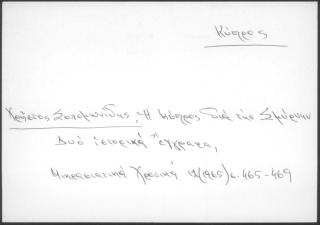 Κύπρος
Χρῆστος Σολομωνίδης, Ἡ Κύπρος διά τήν Σμύρνην
Δυό ἱστορικά ἔγγραφα,
Μικρασιατικά Χρονικά 12(1965) σ. 465-469